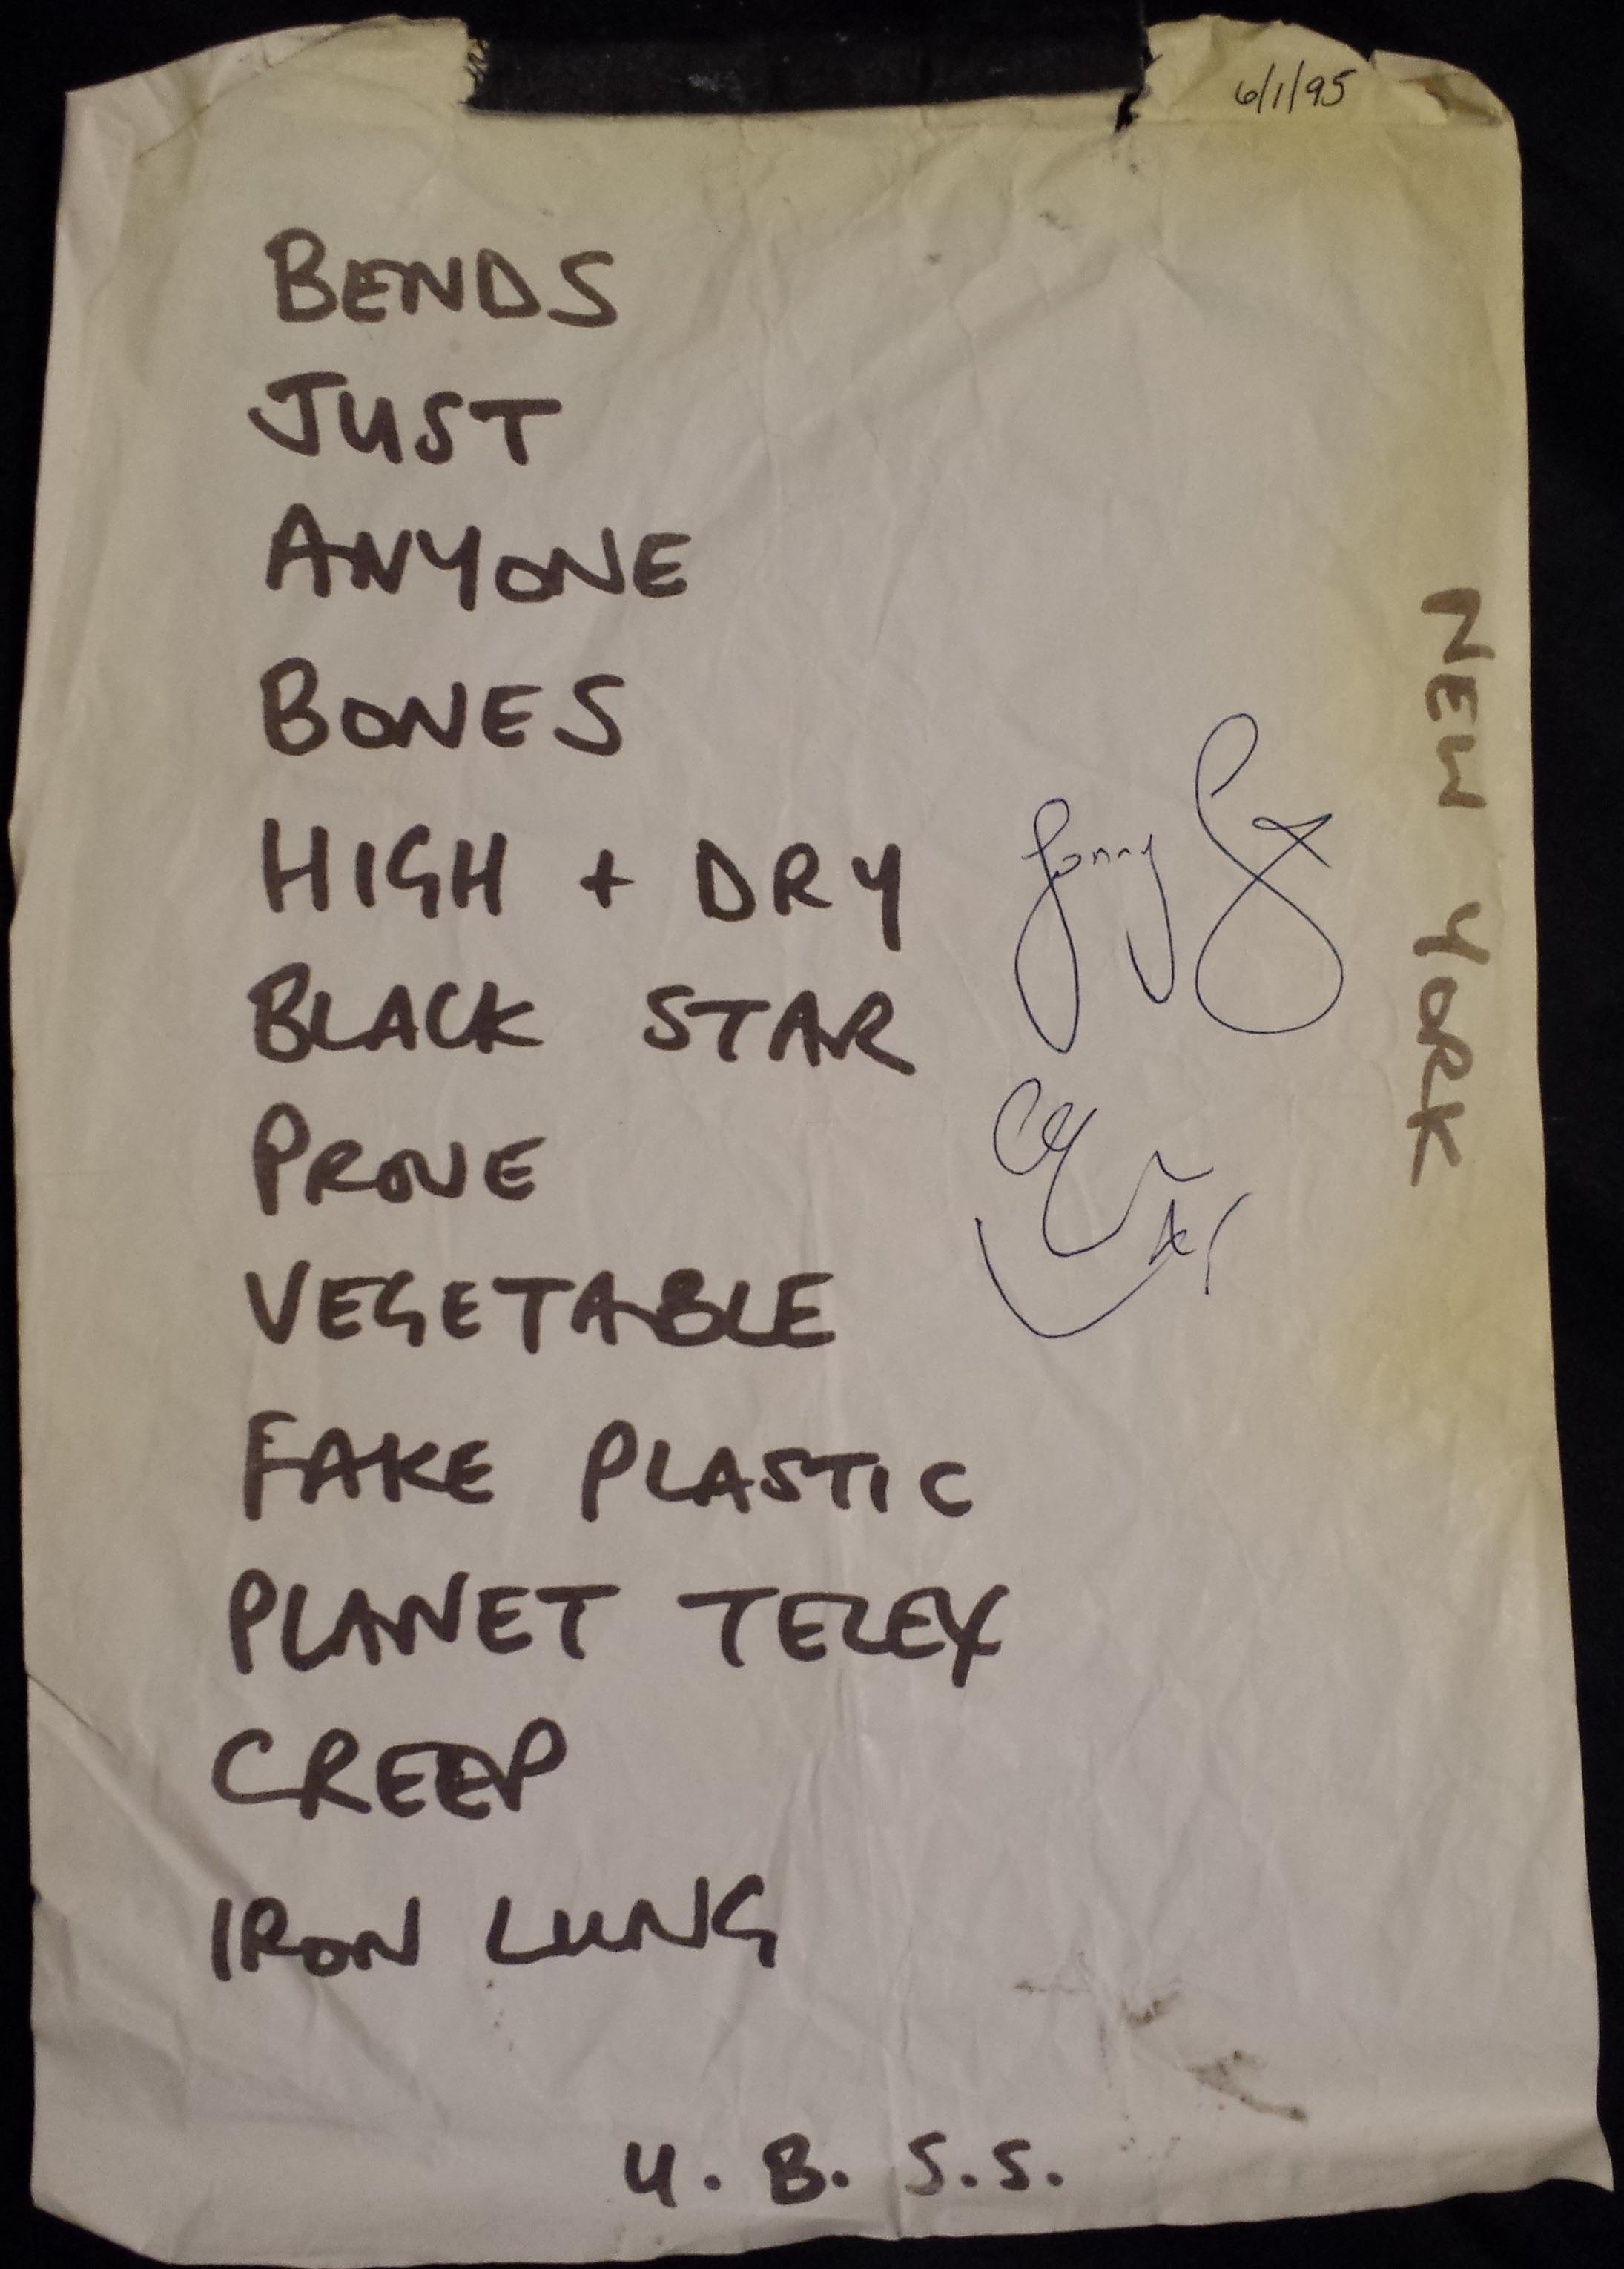 6/1/95
BENDS
JUST
ANYONE
BONES
HIGH + DRY
BLACK STAR
PROVE
VEGETABLE
FAKE PLASTIC
PLANET TELEX
CREEP
IRON LUNG
U. B. S.S.
NEW YORK
Jonny